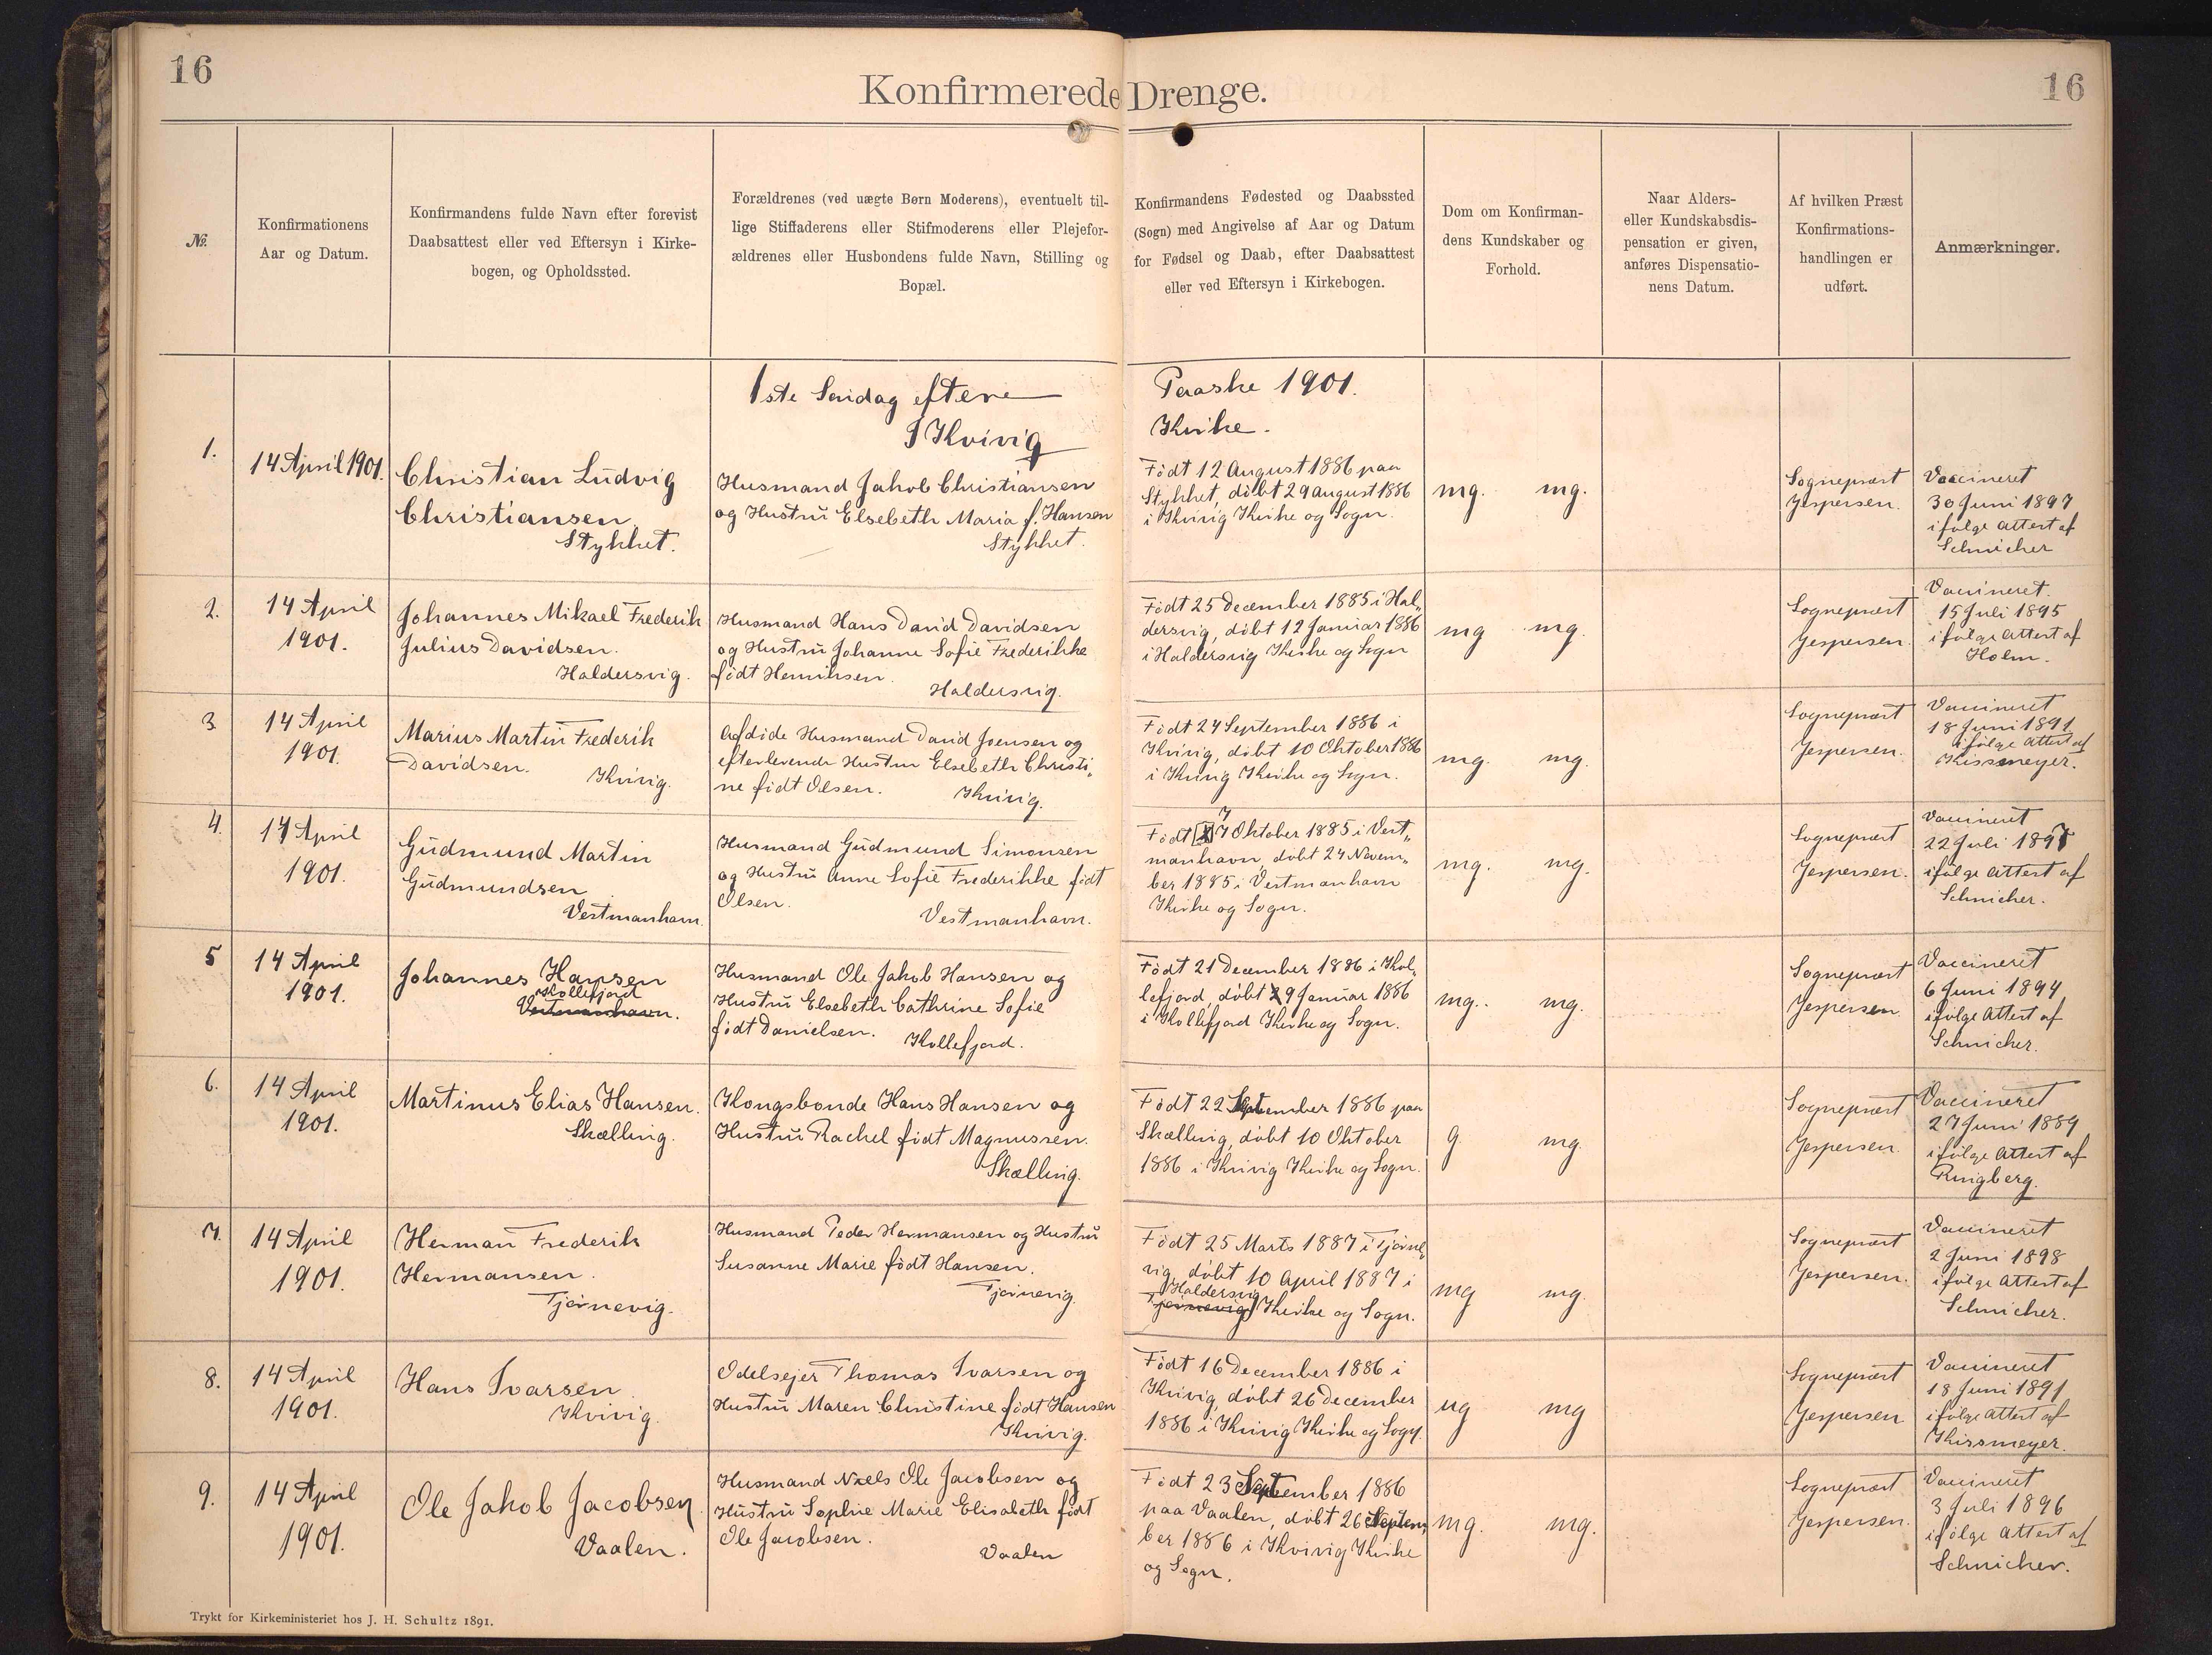 16
16
Konfirmerede Drenge.
№.
Konfirmationens
Aar og Datum.
Konfirmandens fulde Navn efter forevist
Daabsattest eller ved Eftersyn i Kirke-
bogen, og Opholdssted.
Forældrenes (ved uægte Børn Moderens), eventuelt til-
lige Stiffaderens eller Stifmoderens eller Plejefor-
ældrenes eller Husbondens fulde Navn, Stilling og
Bopæl.
Konfirmandens Fødested og Daabssted
(Sogn) med Angivelse af Aar og Datum
for Fødsel og Daab, efter Daabsattest
eller ved Eftersyn i Kirkebogen.
Dom om Konfirman-
dens Kundskaber og
Forhold.
Naar Alders-
eller Kundskabsdis-
pensation er given,
anføres Dispensatio-
nens Datum.
Af hvilken Præst
Konfirmations-
handlingen er
udført.
Anmærkninger.
1ste Søndag efter Paaske 1901.
I Kvivig Kirke.
1.
14 April 1901.
Christian Ludvig
Christiansen
Stykket.
Husmand Jakob Christiansen
og Hustru Elsebeth Maria f. Hansen
Stykket.
Født 12 August 1886 paa
Stykket, døbt 29 August 1886
i Kvivig Kirke og Sogn.
mg. mg.
Sognepræst
Jespersen.
Vaccineret
30 Juni 1897
ifølge Attest af
Schnicker
2.
14 April
1901.
Johannes Mikael Frederik
Julius Davidsen.
Haldersvig.
Husmand Hans David Davidsen
og Hustru Johanne Sofie Frederikke
født Henriksen.
Haldersvig.
Født 25 December 1885 i Hal„
dersvig, døbt 12 Januar 1886
i Haldersvig Kirke og Sogn
mg mg.
Sognepræst
Jespersen.
Vaccineret.
15 Juli 1895
ifølge Attest af
Holm.
3
14 April
1901.
Marius Martin Frederik
Davidsen.
Kvivig.
Afdøde Husmand David Joensen og
efterlevende Hustru Elsebeth Christi„
ne født Olsen.
Kvivig.
Født 24 September 1886 i
Kvivig, døbt 10 Oktober 1886
i Kvivig Kirke og Sogn.
mg. mg.
Sognepræst
Jespersen.
Vaccineret
18 Juni 1891
ifølge Attest af
Kissmeyer.
4.
14 April
1901.
Gudmund Martin
Gudmundsen
Vestmanhavn.
Husmand Gudmund Simonsen
og Hustru Anne Sofie Frederikke født
Olsen.
Vestmanhavn.
7
Født 7 Oktober 1885 i Vest„
manhavn, døbt 24 Novem„
ber 1885 i Vestmanhavn
Kirke og Sogn.
mg. mg.
Sognepræst
Jespersen.
Vaccineret
22 Juli 1897
ifølge Attest af
Schnicker.
5
14 April
1901.
Johannes Hansen
Kollefjord
Vestmanhavn.
Husmand Ole Jakob Hansen og
Hustru Elsebeth Cathrine Sofie
født Danielsen.
Kollefjord.
Født 21 December 1886 i Kol„
lefjord, døbt 29 Januar 1886
i Kollefjord Kirke og Sogn.
mg. mg.
Sognepræst
Jespersen
Vaccineret
6 Juni 1894
ifølge Attest af
Schnicker.
6.
14 April
1901.
Martinus Elias Hansen.
Skælling.
Kongsbonde Hans Hansen og
Hustru Rachel født Magnussen.
Skælling.
Født 22 September 1886 paa
Skælling, døbt 10 Oktober
1886 i Kvivig Kirke og Sogn.
g. mg.
Sognepræst
Jespersen.
Vaccineret
27 Juni 1889
ifølge Attest af
Ringberg.
7.
14 April
1901.
Herman Frederik
Hermansen.
Tjørnevig.
Husmand Peder Hermansen og Hustru
Susanne Marie født Hansen.
Tjørnevig.
Født 25 Marts 1887 i Tjørne„
vig, døbt 10 April 1887 i
Haldersvig
Tjørnevig Kirke og Sogn.
mg mg.
Sognepræst
Jespersen.
Vaccineret
2 Juni 1898
ifølge Attest af
Schnicker.
8.
14 April
1901.
Hans Ivarsen
Kvivig.
Odelsejer Thomas Ivarsen og
Hustru Maren Christine født Hansen
Kvivig.
Født 16 December 1886 i
Kvivig, døbt 26 December
1886 i Kvivig Kirke og Sogn.
ug mg
Sognepræst
Jespersen
Vaccineret
18 Juni 1891
ifølge Attest af
Kissmeyer.
9.
14 April
1901.
Ole Jakob Jacobsen
Vaalen.
Husmand Niels Ole Jacobsen og
Hustru Sophie Marie Elisabeth født
Ole Jacobsen.
Vaalen
Født 23 September 1886
paa Vaalen, døbt 26 Septem„
ber 1886 i Kvivig Kirke
og Sogn.
mg. mg.
Sognepræst
Jespersen.
Vaccineret
3 Juli 1896
ifølge Attest af
Schnicker.
Trykt for Kirkeministeriet hos J. H. Schultz 1891.